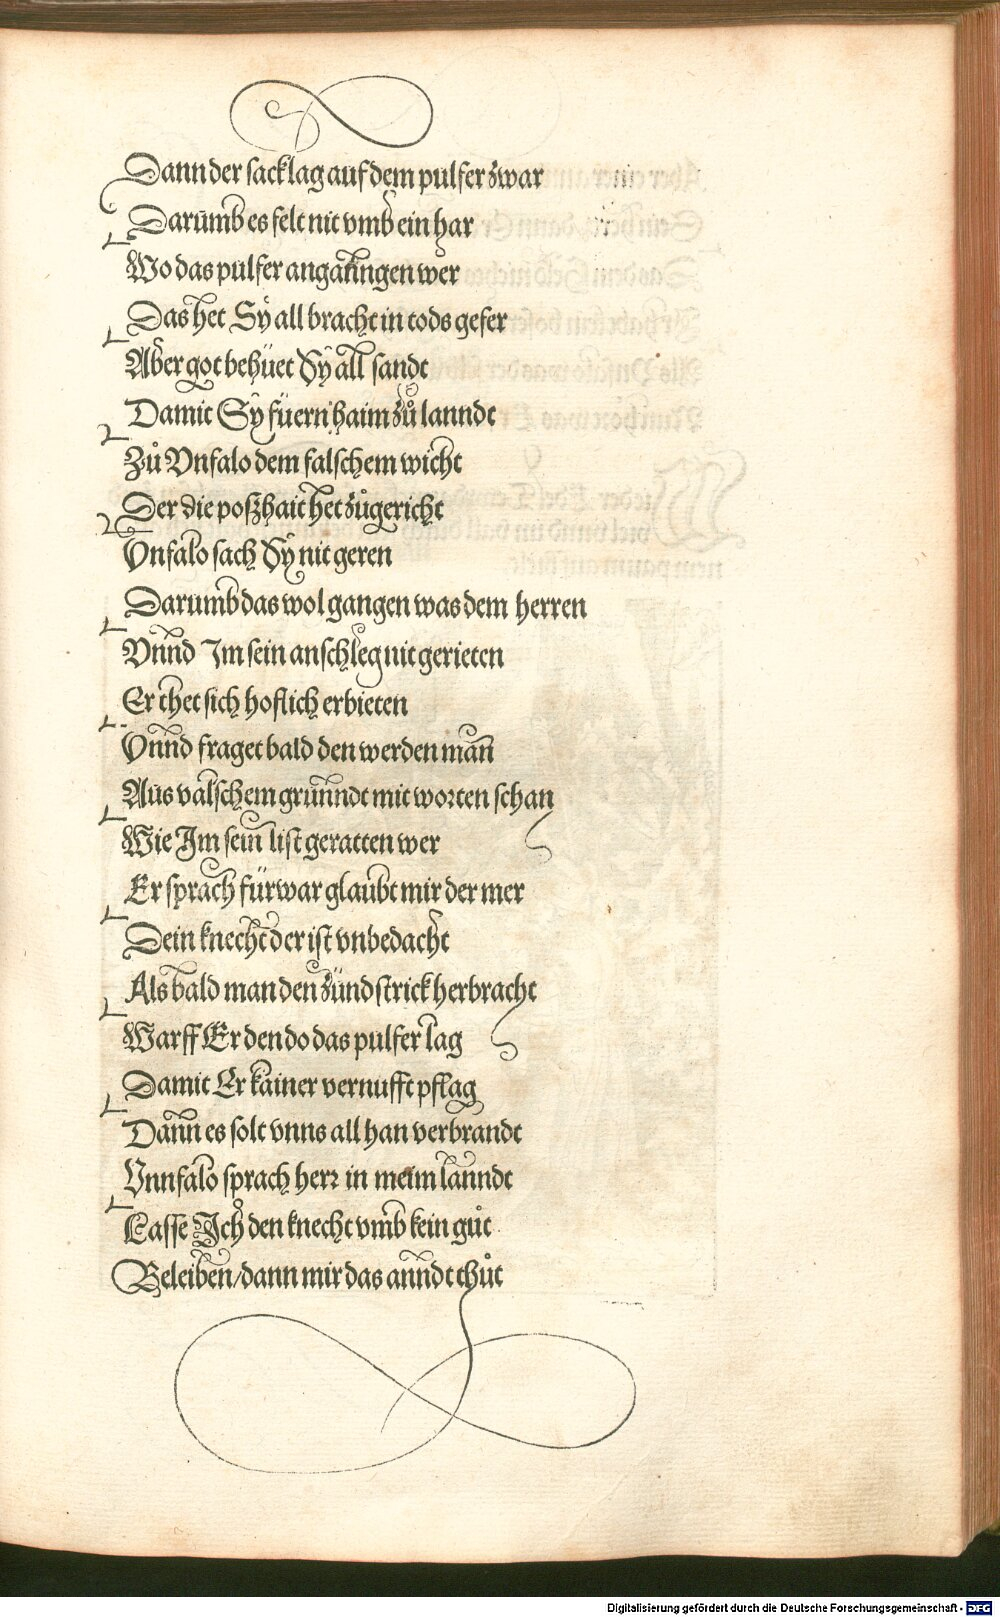 Dann der sack lag auf dem pulfer zwar
Darumb es felt nit vmb ein har
Wo das pulfer anganngen wer
Das het Sy all bracht in tods gefer
Aber got behüet Sy all sandt
Damit Sy füern haim zů lanndt
Zů Vnfalo dem falschem wicht
Der die poßhait het zůgericht
Vnfalo sach Sy nit geren
Darumb das wol gangen was dem herren
Vnnd Im sein anschleg nit gerieten
Er thet sich hoflich erbieten
Vnnd fraget bald den werden man
Aus valschem grunndt mit worten schan
Wie Im sein list geratten wer
Er sprach fürwar glaubt mir der mer
Dein knecht der ist vnbedacht
Als bald man den zündstrick herbracht
Warff Er den do das pulfer lag
Damit Er kainer vernufft pflag
Dann es solt vnns all han verbrandt
Vnnfalo sprach herr in meim lanndt
Lasse Ich den knecht vmb kein gůt
Beleiben / dann mir das anndt thůt
Digitalisierung gefördert durch die Deutsche Forschungsgemeinschaft - DFG